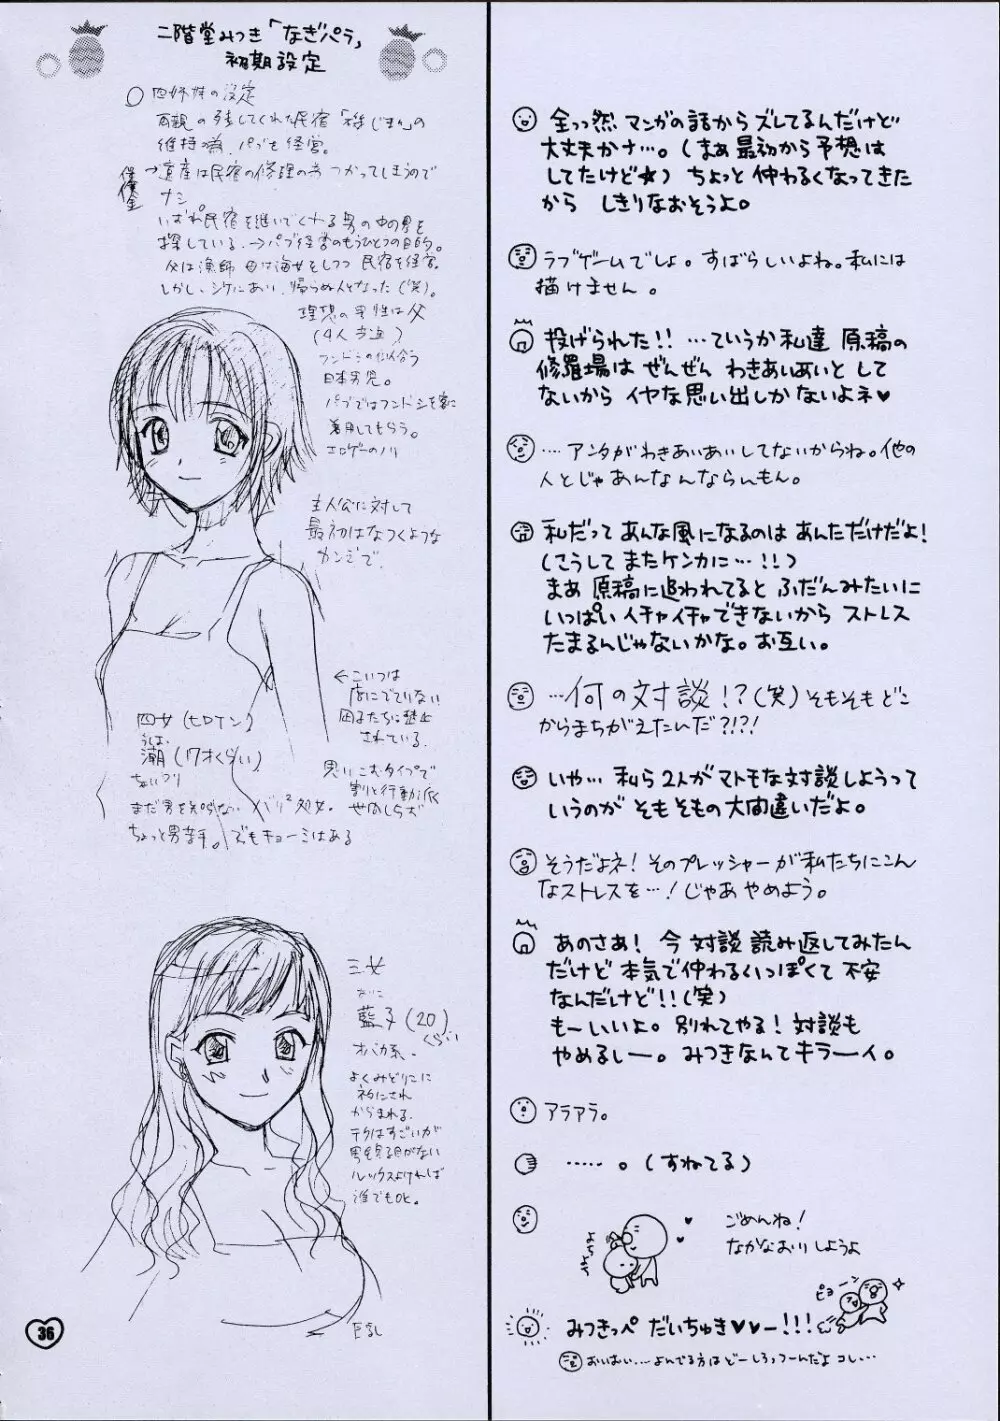 二階堂みつき「なぎパラ」
初期設定
四姉妹の設定
両親の残してくれた民宿「
維持の為、パブを経営。
→遺産は民宿の修理の為つかってしまうので
ナシ。
いずれ民宿を継いでくれる男の中の男を
探している。→パブ経営のもうひとつの目的。
父は漁師 母は海女をしつつ 民宿を経営。
しかし、シケにあい、帰らぬ人となった(笑)。
理想の男性は父
(4人共通)
フンドシの似合う
日本男児。
パブではフンドシを客に
着用してもらう。
エロゲーのノリ
主人公に対して
最初はなつくような
カンジで。
←こいつは
店にでていない
姉たちに禁止
されている。
四女(ヒロイン)
うしお
潮(17才くらい)
思いこむタイプで
割と行動派
世間しらず
まだ男を知らない バリ²処女。
ちょっと男苦手。でもキョーミはある
三女
藍子(20)
くらい
オバカ系。
よくみどりこに
ネタにされ
からまれる。
テクはすごいが
男を見る目がない
ルックスよければ
誰でもOK。
巨乳
36
全っっ然 マンガの話から ズレてるんだけど
大丈夫かナ…。(まぁ最初から予想は
してたけど☆) ちょっと仲わるくなってきた
から しきりなおそうよ。
ラブゲームでしょ。すばらしいよね。私には
描けません。
投げられた!! …ていうか私達 原稿の
修羅場は ぜんぜん わきあいあいと して
ないから イヤな思い出しかないよネ♥
…. アンタがわきあいあいしてないからね。他の
人とじゃあんなんならんもん。
私だって あんな風になるのは あんただけだよ!
(こうして またケンカに…!!)
まぁ 原稿に追われてると ふだんみたいに
いっぱい イチャイチャできないから ストレス
たまるんじゃないかな。お互い。
…何の対談!?(笑) そもそも どこ
からまちがえたんだ?!?!
いや… 私ら2人がマトモな対談しようって
いうのが そもそもの大間違いだよ。
そうだよネ! そのプレッシャーが私たちにこん
なストレスを…! じゃあ やめよう。
あのさぁ! 今 対談 読み返してみたん
だけど 本気で仲わるくいっぽくて 不安
なんだけど!!(笑)
もーいいよ。別れてやる! 対談も
やめるしー。みつきなんてキラーイ。
アラアラ。
……。(すねてる)
ごめんね!
なかなおりしようよ
よしよし
ピョーン
みつきっぺ だいちゅき♥♥ー!!!
おいおい…よんでる方はどーしろっつーんだよ コレ…